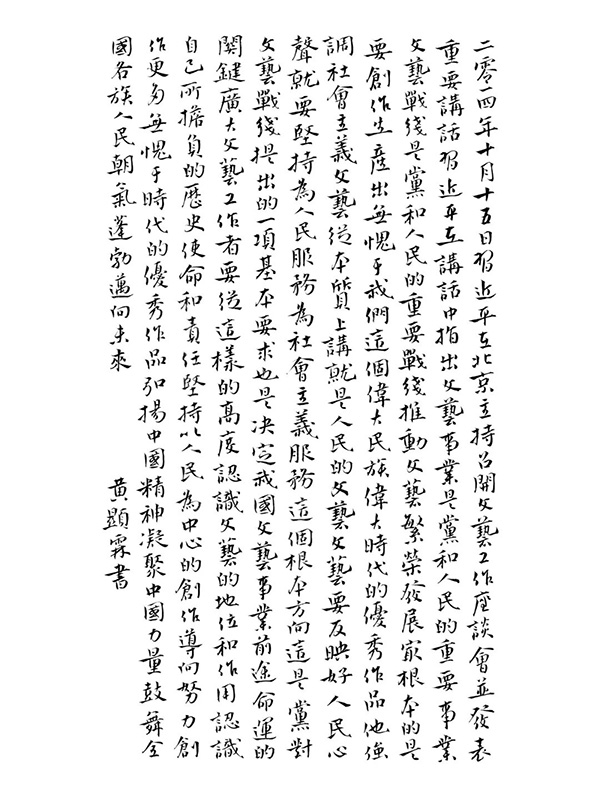 二零一四年十月十五日習近平在北京主持召開文藝工作座談會並發表
重要講話習近平在講話中指出文藝事業是黨和人民的重要事業
文藝戰綫是黨和人民的重要戰綫推動文藝繁榮發展最根本的是
要創作生產出無愧于我們這個偉大民族偉大時代的優秀作品他強
調社會主義文藝從本質上講就是人民的文藝文藝要反映好人民心
聲就要堅持為人民服務為社會主義服務這個根本方向這是黨對
文藝戰綫提出的一項基本要求也是决定我國文藝事業前途命運的
關鍵廣大文藝工作者要從這樣的高度認識文藝的地位和作用認識
自己所擔負的歷史使命和責任堅持以人民為中心的創作導向努力創
作更多無愧于時代的優秀作品弘揚中國精神凝聚中國力量鼓舞全
國各族人民朝氣蓬勃邁向未來
黄顯霖書